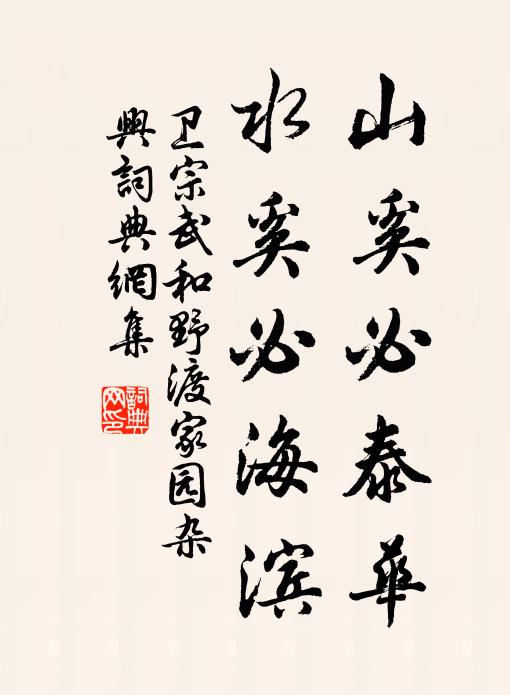 山奚必泰華
水奚必海滨
卫宗武和野渡家园杂
興詞典網集
詞典网印